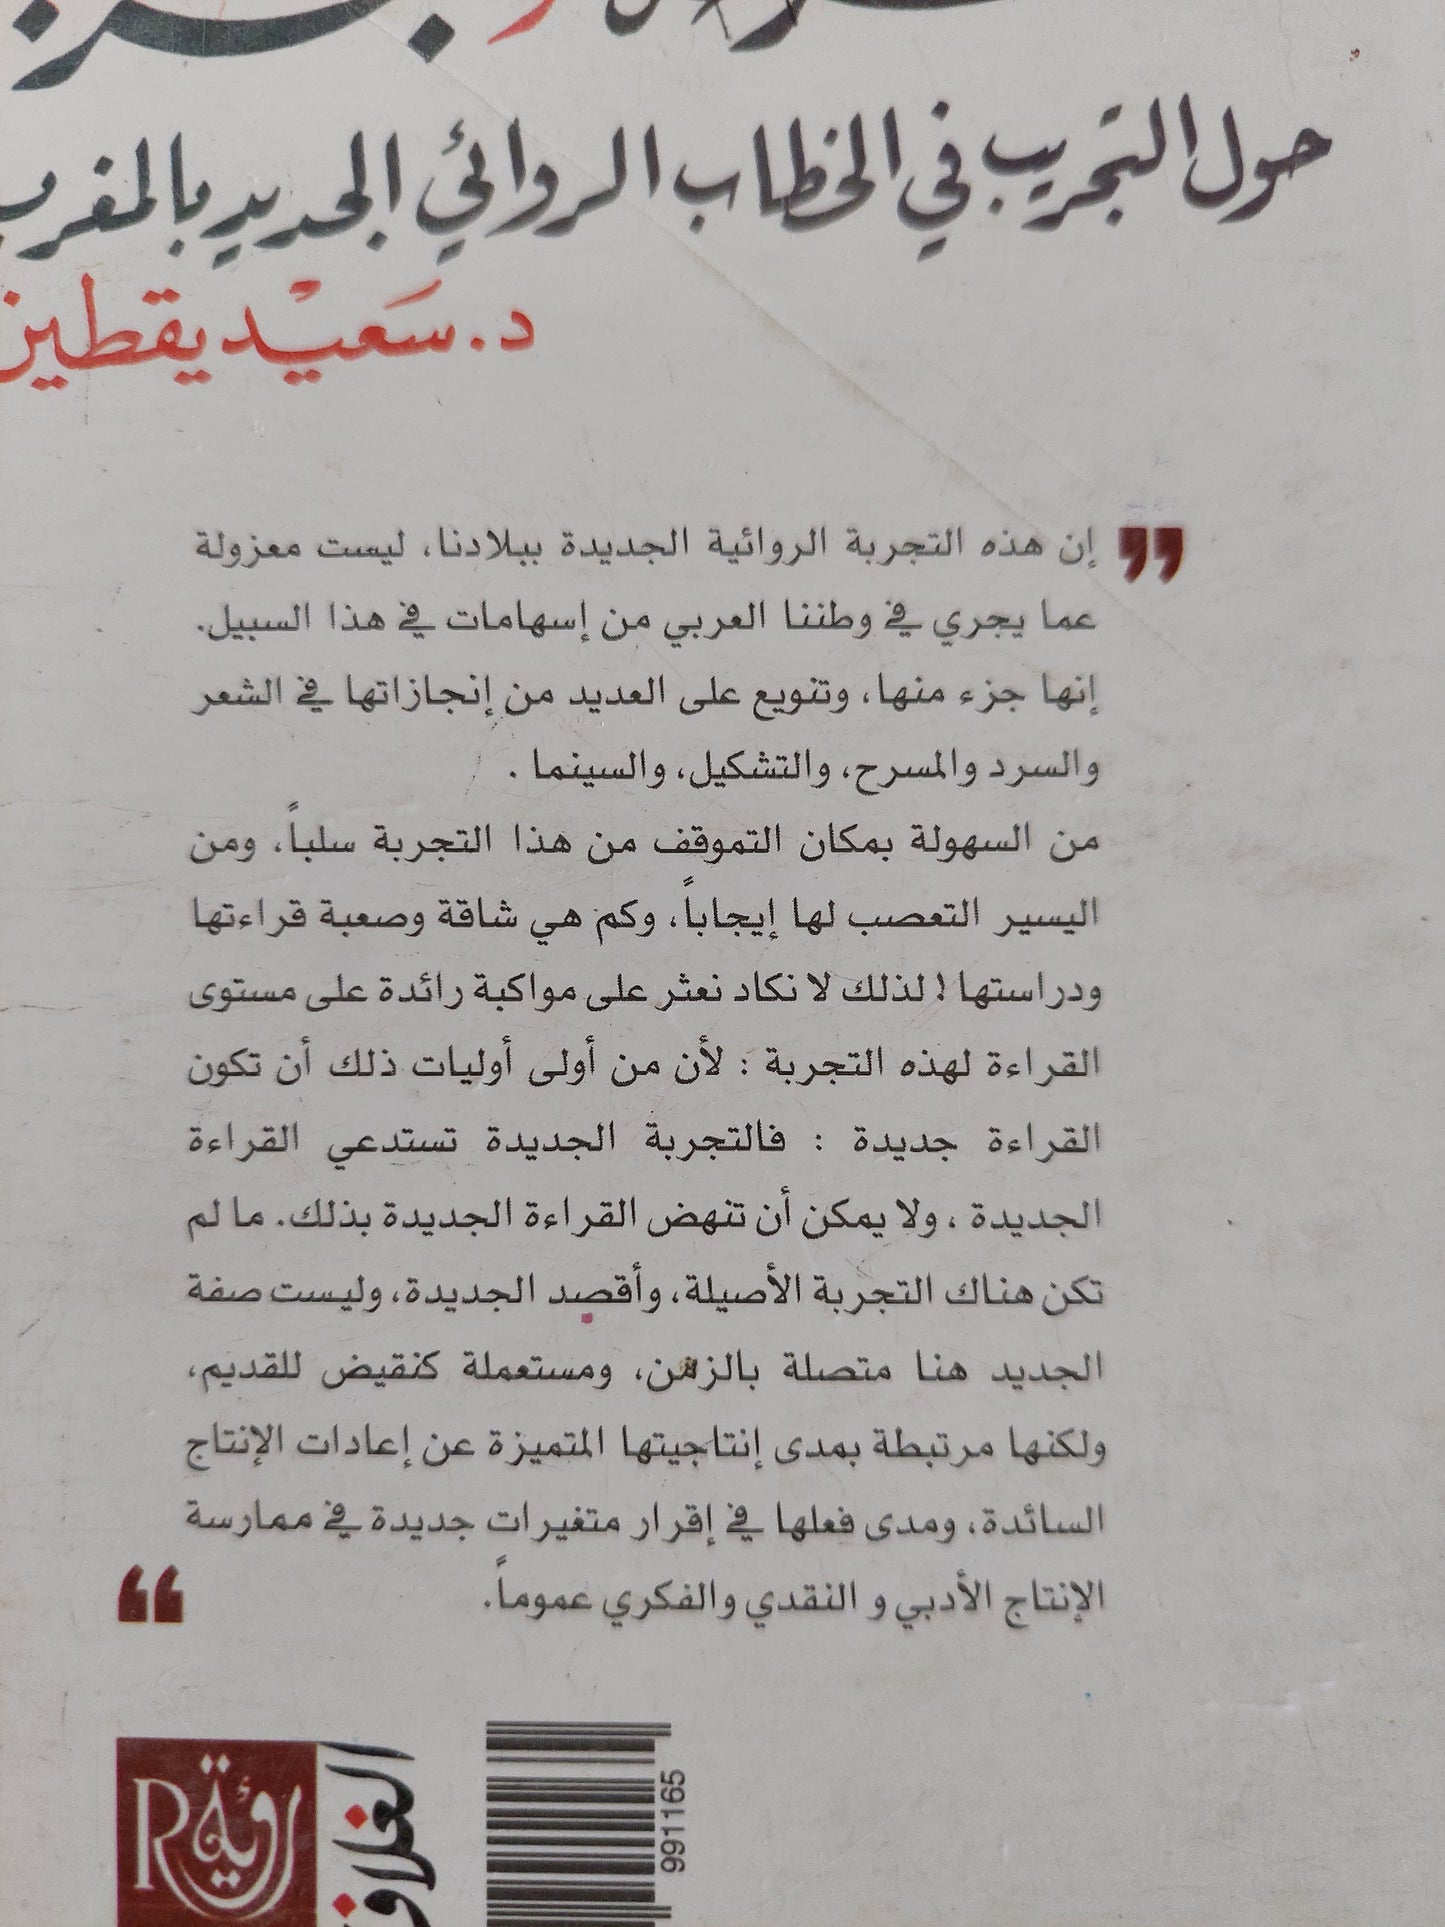 حول التجريب في الخطاب الروائي الجديد بالمغرب
د. سعيد يقطين
إن هذه التجربة الروائية الجديدة ببلادنا، ليست معزولة
عما يجري في وطننا العربي من إسهامات في هذا السبيل.
إنها جزء منها، وتنويع على العديد من إنجازاتها في الشعر
والسرد والمسرح، والتشكيل، والسينما .
من السهولة بمكان التموقف من هذا التجربة سلباً، ومن
اليسير التعصب لها إيجاباً، وكم هي شاقة وصعبة قراءتها
ودراستها ! لذلك لا نكاد نعثر على مواكبة رائدة على مستوى
القراءة لهذه التجربة : لأن من أولى أوليات ذلك أن تكون
القراءة جديدة : فالتجربة الجديدة تستدعي القراءة
الجديدة ، ولا يمكن أن تنهض القراءة الجديدة بذلك. ما لم
تكن هناك التجربة الأصيلة، وأقصد الجديدة، وليست صفة
الجديد هنا متصلة بالزمن، ومستعملة كنقيض للقديم،
ولكنها مرتبطة بمدى إنتاجيتها المتميزة عن إعادات الإنتاج
السائدة، ومدى فعلها في إقرار متغيرات جديدة في ممارسة
الإنتاج الأدبي و النقدي والفكري عموماً.
رؤية
R
991165